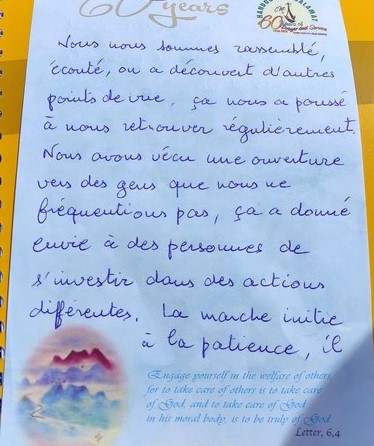 60 years
60
Nous nous sommes rassemblé,
écouté, on a découvert d'autres
points de vue, ça nous a poussé
à nous retrouver régulièrement.
Nous avons vécu une ouverture
vers des gens que nous ne
fréquentions pas, ça a donné
envie à des personnes de
s'investir dans des actions
différentes. La marche initie
à la patience, il
Engage yourself in the welfare of others
for to take care of others is to take care
of God, and to take care of God
in his moral body, is to be truly of God.
Letter, 6,4